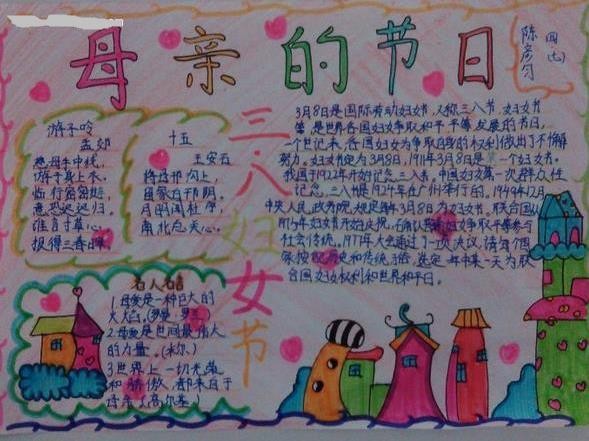 母亲的节日
陈彦匀
四(七)
游子吟
孟郊
慈母手中线，
游子身上衣。
临行密密缝，
意恐迟迟归。
谁言寸草心，
报得三春晖。
十五
王安石
将母邗沟上，
留家白邗阴，
月明闻杜宇，
南北总关心。
三·八妇女节
3月8日是国际劳动妇女节，又称三八节，妇女节
等，是世界各国妇女争取和平、平等、发展的节日，
一个世纪来，各国妇女为争取自身的权利做出了不懈
努力。妇女节定为3月8日，1911年3月8日是第一个妇女节。
我国于1922年开始记念三八节。中国妇女第一次群众性
记念三八节是1924年在广州举行的。1949年12月，
中央人民政务院规定每年3月8为妇女节。联合国从
年妇女节开始庆祝，
社会传统。1977年大会通过了一项决议，请每个国
家按照历史和传统习俗，选定一年中某一天为联
合国妇女权利和世界和平日。
名人名言
1.母爱是一种巨大的
火焰(罗曼·罗兰)
2.母爱是世间最伟大
的力量。(米尔)
3.世界上一切光荣
和骄傲，都来自于
母亲。(高尔基)